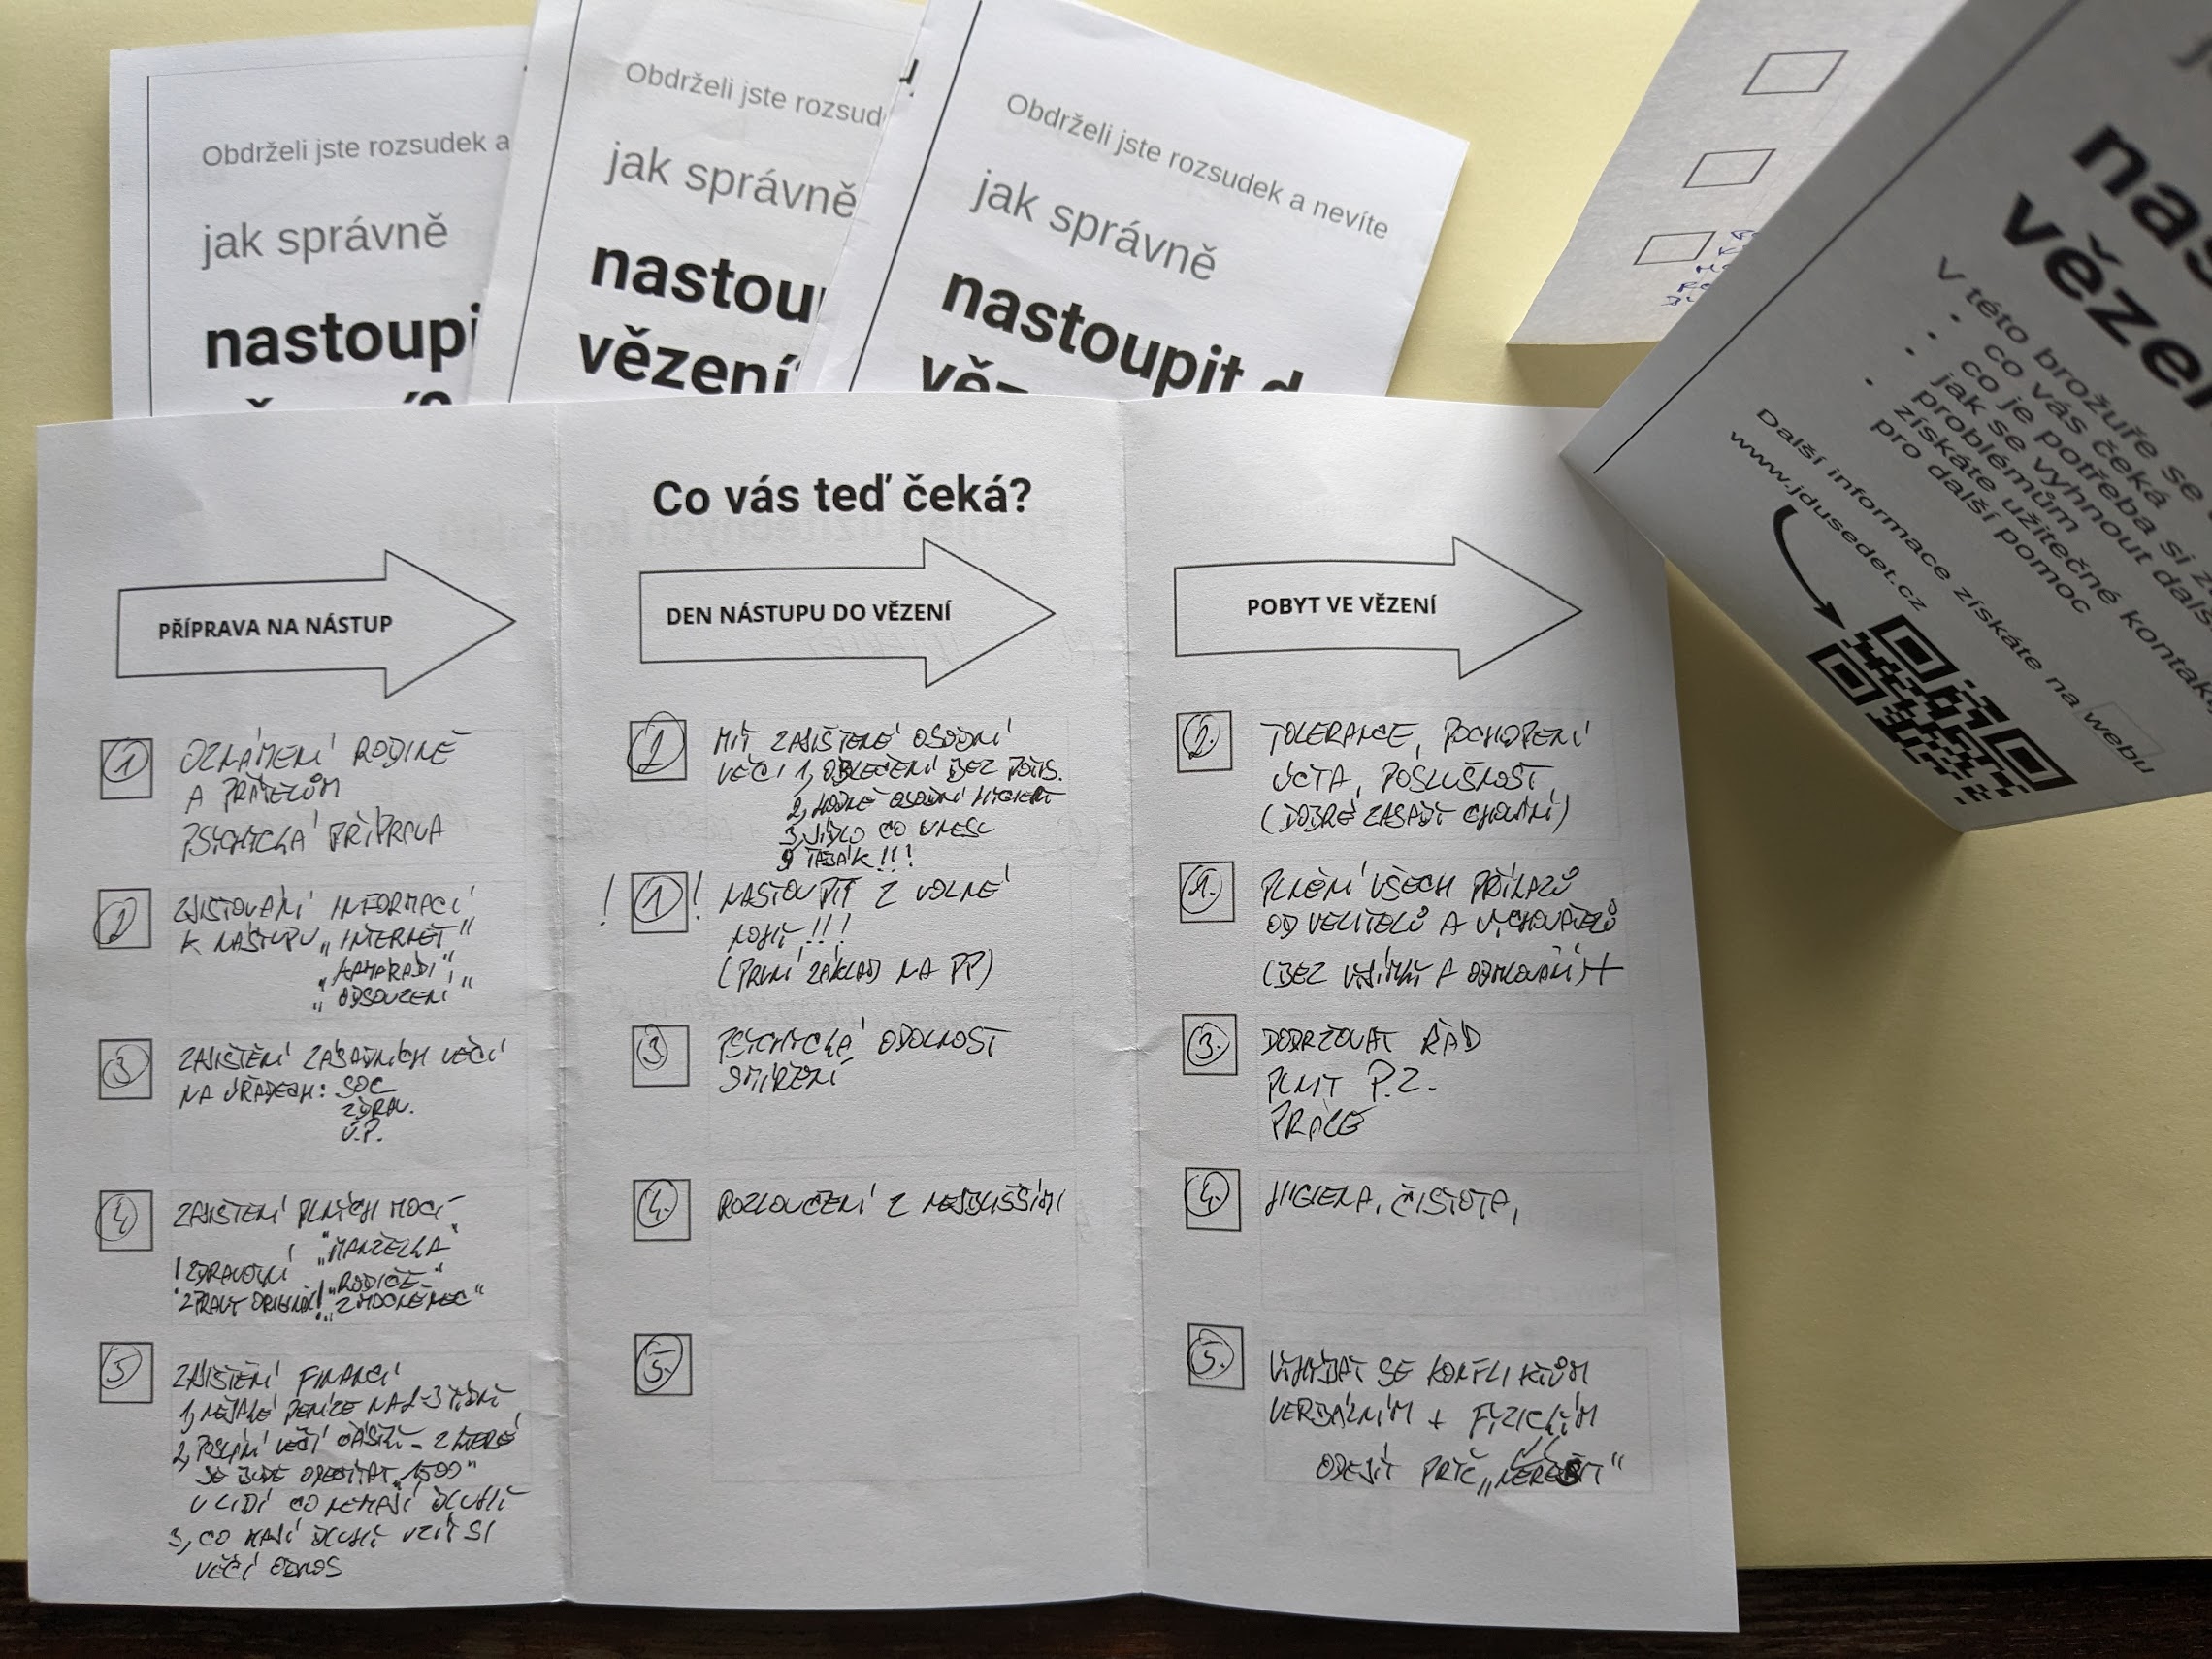 Obdrželi jste rozsudek a
jak správně
nastoupi
Obdrželi jste rozsud
jak správně
nastou
vězení
Obdrželi jste rozsudek a nevíte
jak správně
nastoupit d
věz
nas
vězen
V této brožuře se
co vás čeká
co je potřeba si z
jak se vyhnout dalš
problémům
získáte užitečné kontakt
pro další pomoc
Další informace získáte na webu
www.jdusedet.cz
Co vás teď čeká?
PŘÍPRAVA NA NÁSTUP
1 OZNÁMENÍ RODINĚ
A PŘÁTELŮM
PSYCHICKÁ PŘÍPRAVA
2 ZJISTOVÁNÍ INFORMACÍ
K NÁSTUPU „INTERNET"
„KAMARÁDI",
„ODSOUZENÍ"
3 ZAJIŠTĚNÍ ZÁSADNÍCH VĚCÍ
NA ÚŘADECH: SOC
ZDRAV.
Ú.P.
4 ZAJIŠTENÍ PLNÝCH MOCÍ
„MANŽELKA"
! ZDRAVOTNÍ „RODIČE"
ZPRÁVY ORIGINÁL! „ZMOCNĚNEC"
5 ZAJIŠTĚNÍ FINANCÍ
1, NĚJAKÉ PENÍZE NA 2-3 TÝDNY
2, POSLÁNÍ VĚTČÍ ČÁSTKY - Z KTERÉ
SE BUDE ODEČÍTAT „1500"
U LIDÍ CO NEMAJÍ DLUHY
3, CO MAJÍ DLUHY VZÍT SI
VĚČÍ OBNOS
DEN NÁSTUPU DO VĚZENÍ
2 MÍT ZAJIŠTĚNÉ OSOBNÍ
VĚCI 1, OBLEČENÍ BEZ POTIS.
2, HODNĚ OSOBNÍ HYGIENY
3, JÍDLO CO UNESU
TABÁK!!!
! 1 ! NASTOUPIT Z VOLNÉ
NOHY!!!
(PRVNÍ ZÁKLAD NA PP)
3. PSYCHICKÁ ODOLNOST
SMÍŘENÍ
4. ROZLOUČENÍ Z NEJBLIŠŠÍMI
5.
POBYT VE VĚZENÍ
2. TOLERANCE, POCHOPENÍ
ÚCTA, POSLUŠNOST
(DOBRÉ ZÁSADY CHOVÁNÍ)
1. PLNĚNÍ VŠECH PŘÍKAZŮ
OD VELITELŮ A VYCHOVATELŮ
(BEZ VÝJIMKY A ODMLOUVÁNÍ)
3. DODRŽOVAT ŘÁD
PLNIT P.Z.
PRÁCE
4. HIGIENA, ČISTOTA,
5. VIHÝBAT SE KONFLIKTŮM
VERBÁLNÍM + FYZICKÝM
ODEJÍT PRYČ „NEŘEŠIT"